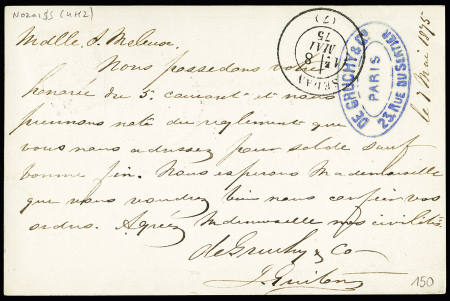 N020155 (UH2)
Mdlle. J. Meleux.
Nous possedons votre
honorée du 5. courant et nous
prennons note du reglement que
vous nous adressez pour solde sauf
bonne fin. Nous esperons Mademoiselle
que vous voudrez bien nous confier vos
ordres. Agréez Mademoiselle nos civilités
de Gruchy & Co
J. Guiton
SEDAN
8
MAI
75
(7)
DE GRUCHY & Co
PARIS
23, RUE DU SENTIER
le 7 Mai 1875
150